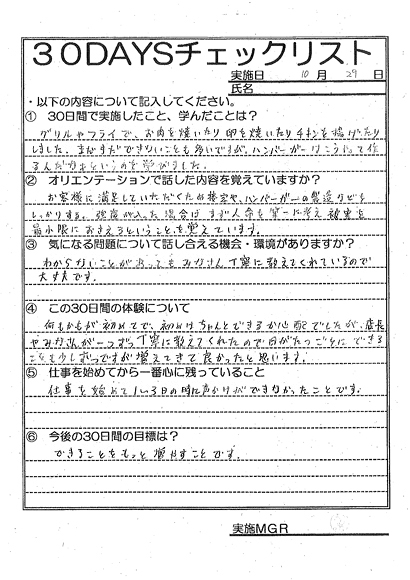 30DAYSチェックリスト
実施日 10 月 29 日
氏名
・以下の内容について記入してください。
① 30日間で実施したこと、学んだことは？
グリルやフライで、お肉を焼いたり卵を焼いたりチキンを揚げたり
しました。まだまだできないことも多いですが、ハンバーガーはこうやって作
るんだなというのを学びました。
② オリエンテーションで話した内容を覚えていますか？
お客様に満足していただくため接客や、ハンバーガーの製造などを
しっかりする。強盗が入った場合はまず人命を第一に考え被害を
最小限におさえるということを覚えています。
③ 気になる問題について話し合える機会・環境がありますか？
わからないことがあってもみなさん丁寧に教えてくれているので
大丈夫です。
④ この30日間の体験について
何もかもが初めてで、初めはちゃんとできるか心配でしたが、店長
やみなさんが一つずつ丁寧に教えてくれたので日がたつごとにできる
ことも少しずつですが増えてきて良かったと思います。
⑤ 仕事を始めてから一番心に残っていること
仕事を始めて1〜3日の時に声かけができなかったことです。
⑥ 今後の30日間の目標は？
できることをもっと増やすことです。
実施MGR